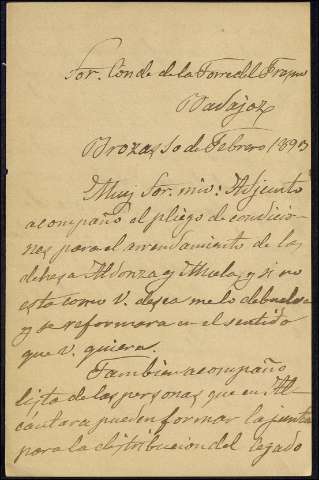 Sor. Conde de la Torre del Fresno
Badajoz
Brozas 10 de Febrero 1893
Muy Sor. mio: Adjunto
acompaño el pliego de condicio-
nes para el arrendamiento de las
dehesas Aldonza y Mula, y si no
esta como V. desea me lo debuelve
y se reformara en el sentido
que V. quiera.
Tambien acompaño
lista de las personas que en Al-
cántara pueden formar la junta
para la distribucion del legado